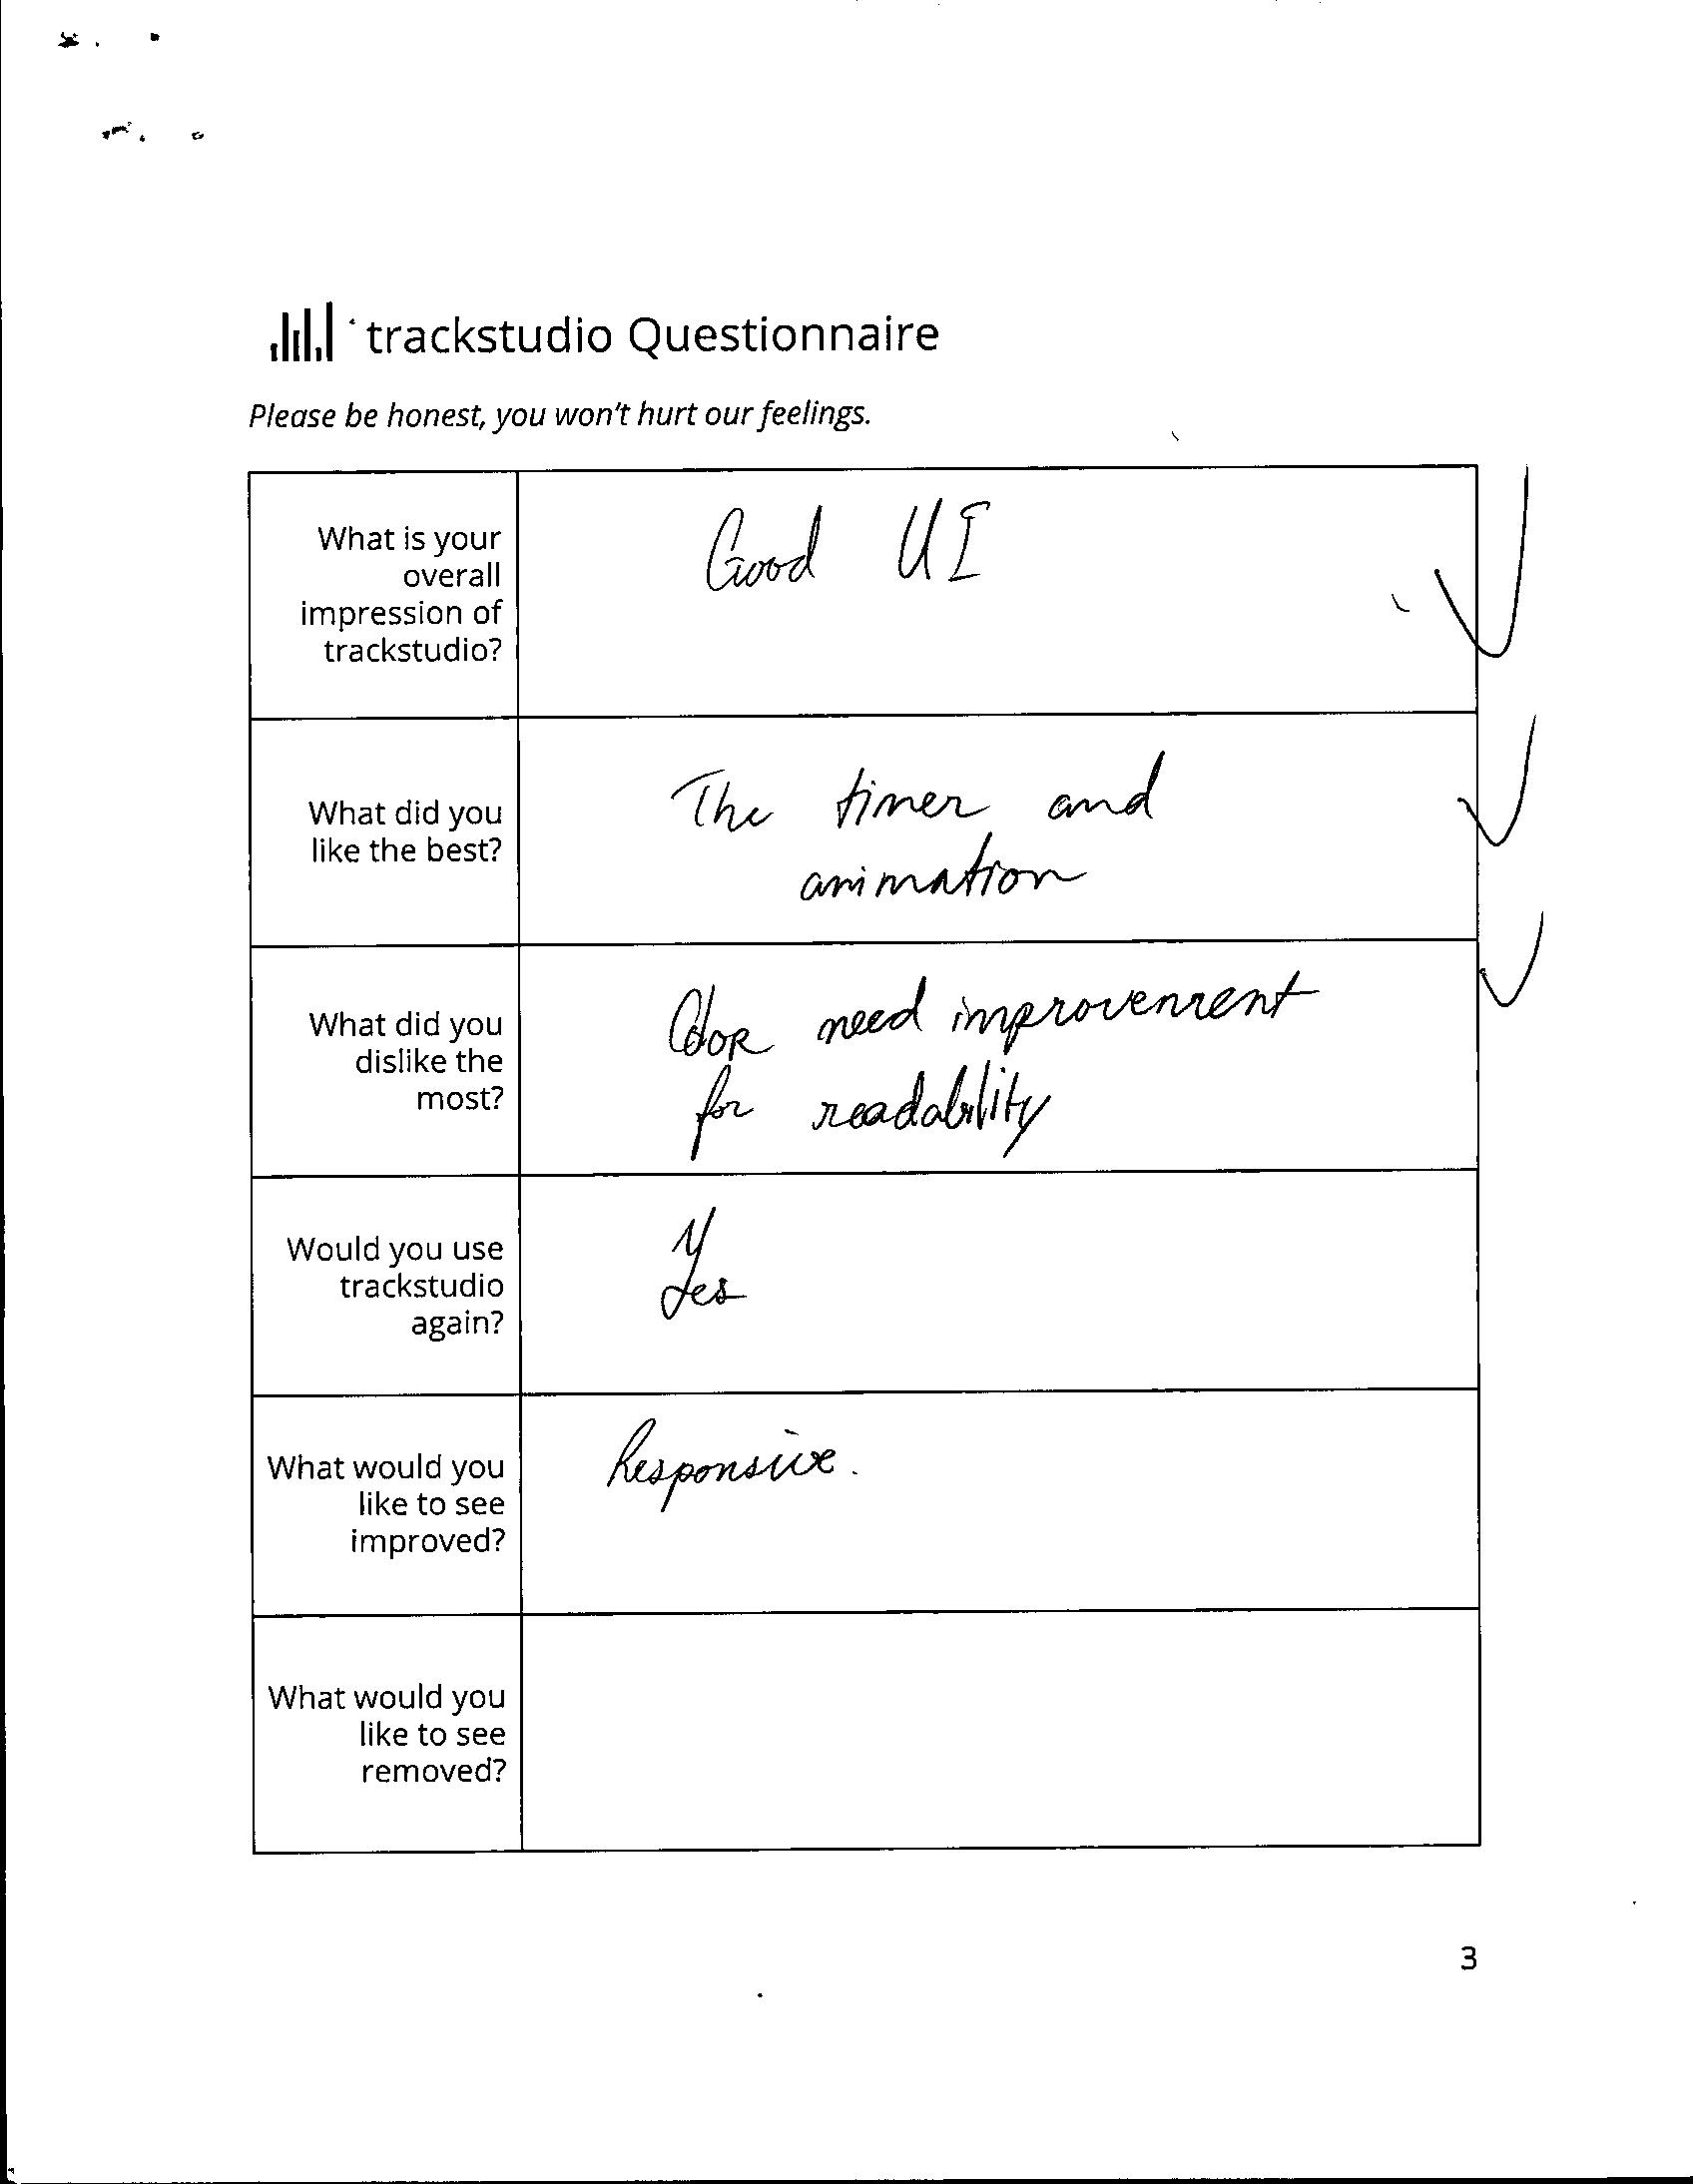 trackstudio Questionnaire
Please be honest, you won't hurt our feelings.
What is your
overall
impression of
trackstudio?
Good UI
What did you
like the best?
The timer and
animation
What did you
dislike the
most?
Color need improvement
for readability
Would you use
trackstudio
again?
Y
Yes
What would you
like to see
improved?
Responsive.
What would you
like to see
removed?
3